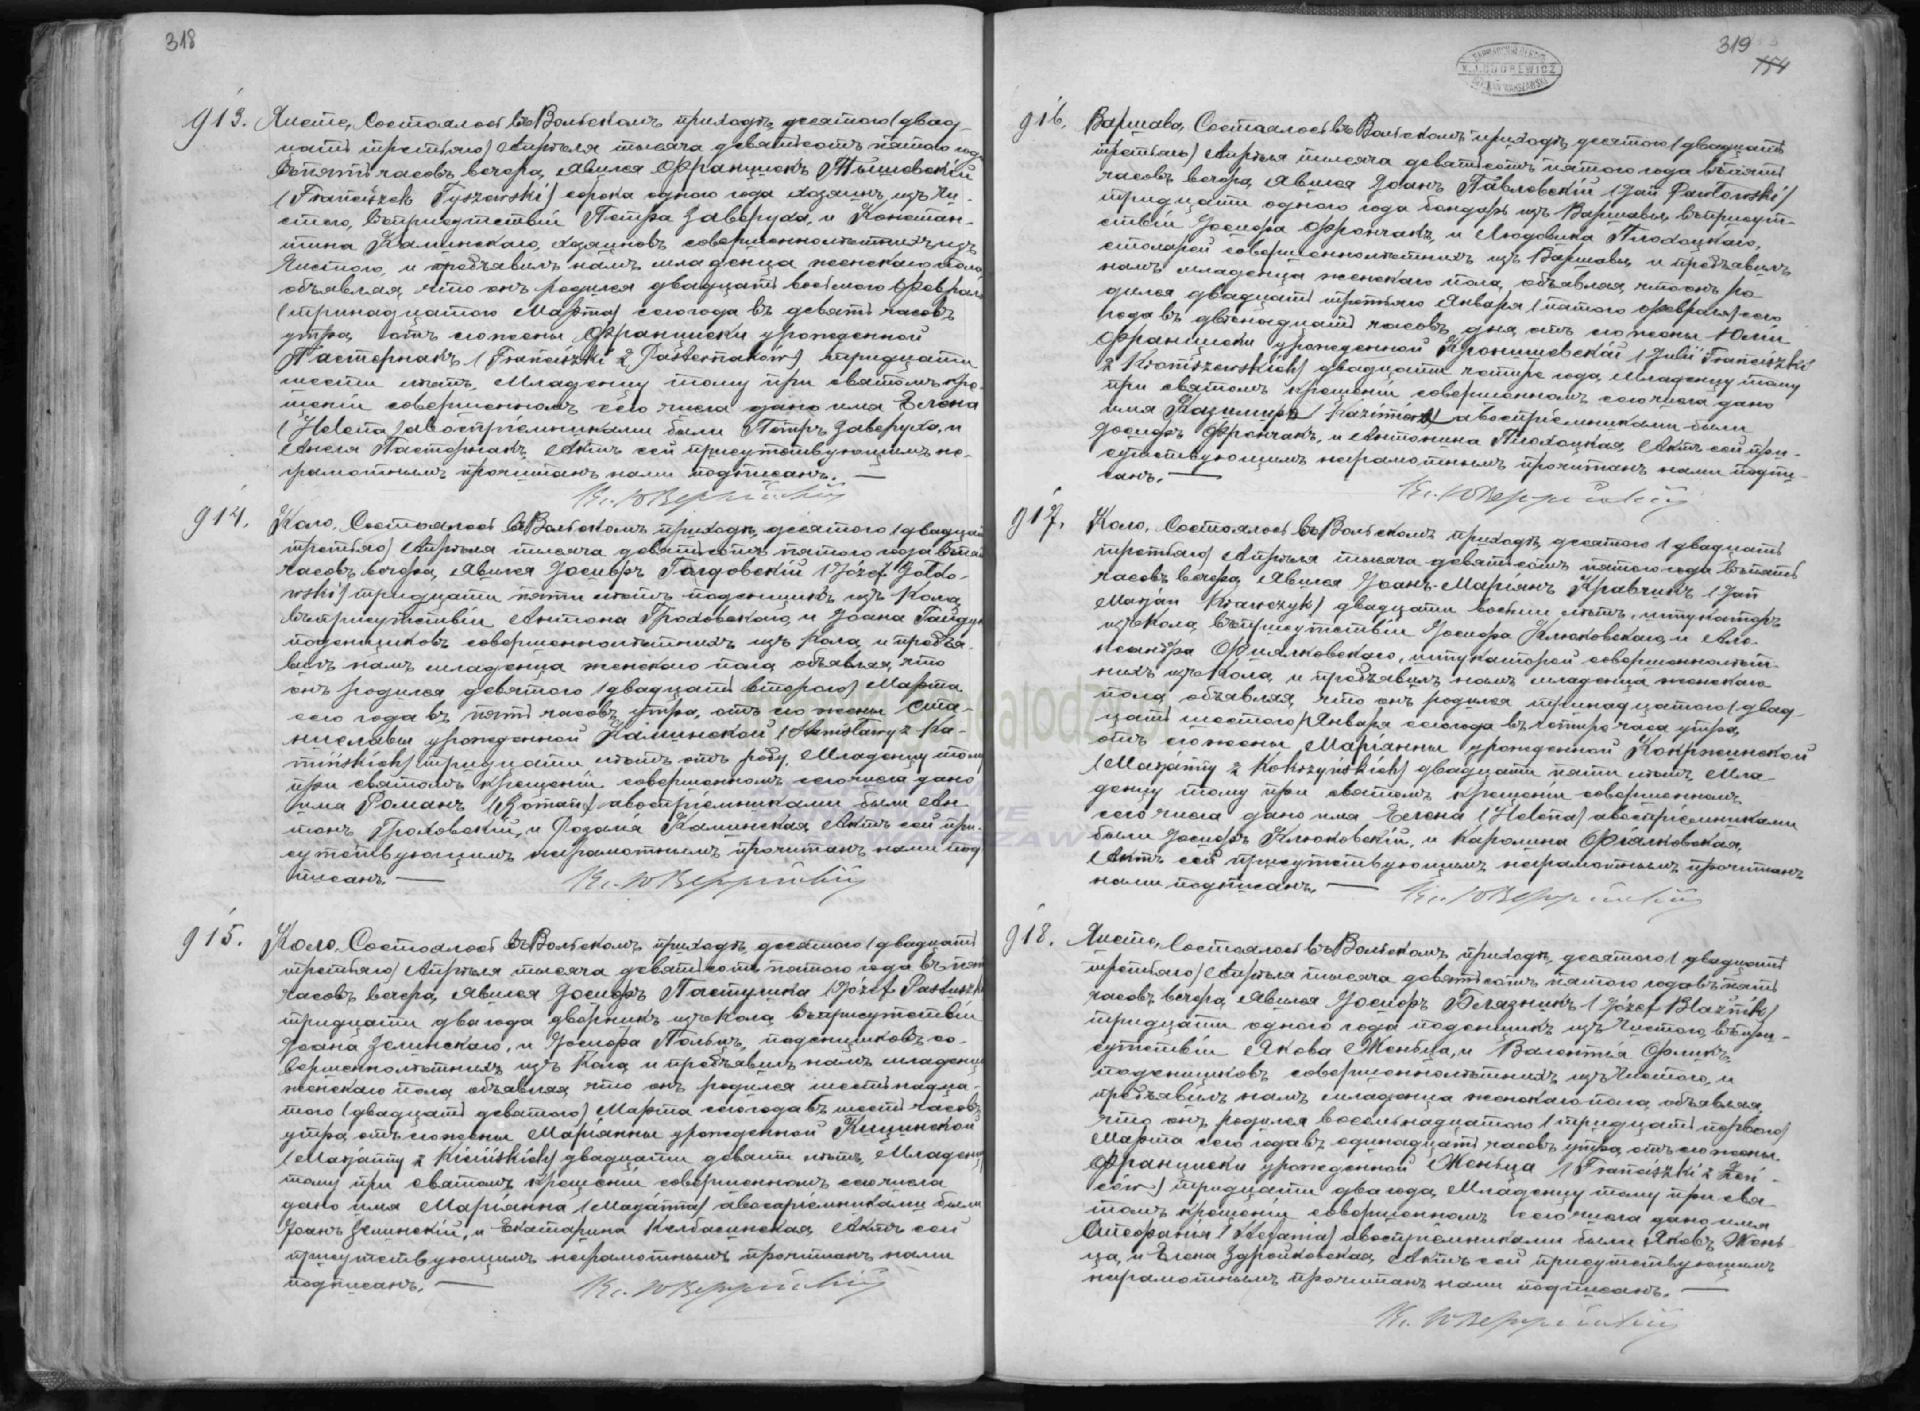 318
913. Чисте, Состоялось въ Вольскомъ приходѣ, десятого (двад-
цать третьяго) Апрѣля тысяча девятьсотъ пятого года
въ пять часовъ вечера, явился Францискъ Тышевскій
(Franciszek Tyszewski) сорока одного года хозяинъ изъ Чи-
стего, въ присутствіи Петра Заверуха, и Констан-
тина Калинскаго, хозяиновъ совершеннолѣтнихъ изъ
Чистого, и предъявилъ намъ младенца женскаго пола
объявляя, что онъ родился двадцать восьмого Февраля
(тринадцатого Марта) сего года въ девять часовъ
утра, отъ его жены Франциски урожденной
Пастернакъ, (Franciszki z Pasternaków) тридцати
шести лѣтъ, Младенцу тому при святомъ кре-
щеніи совершенномъ сего числа дано имя Елена
(Helena) а воспріемниками были Петръ Заверуха, и
Анеля Пастернакъ, Актъ сей присутствующимъ не-
грамотнымъ прочитанъ нами подписанъ. —
914. Коло, Состоялось въ Вольскомъ приходѣ, десятого (двадцать
третьяго) Апрѣля тысяча девятьсотъ пятого года въ пять
часовъ вечера, явился Іосифъ Голдовскій (Józef Gołdo-
wski) тридцати пяти лѣтъ поденщикъ изъ Кола,
въ присутствіи Антона Гроховскаго, и Іоана Гайдукъ
поденщиковъ совершеннолѣтнихъ изъ Кола, и предъя-
вилъ намъ младенца женскаго пола, объявляя, что
онъ родился девятого (двадцать второго) Марта
сего года въ пять часовъ утра, отъ его жены Ста-
ниславы урожденной Каминской (Stanisławy z Ka-
mińskich) тридцати лѣтъ отъ роду, Младенцу тому
при святомъ крещеніи совершенномъ сего числа дано
имя Романъ (Roman) а воспріемниками были Ан-
тонъ Гроховскій, и Розалія Каминская, Актъ сей при-
сутствующимъ неграмотнымъ прочитанъ нами под-
писанъ. —
915. Коло, Состоялось въ Вольскомъ приходѣ, десятого (двадцать
третьяго) Апрѣля тысяча девятьсотъ пятого года въ пять
часовъ вечера, явился Іосифъ Пастушка (Józef Pastuszka)
тридцати два года дворникъ изъ Кола, въ присутствіи
Іоана Зелинскаго, и Іосифа Польщ, поденщиковъ со-
вершеннолѣтнихъ изъ Кола, и предъявилъ намъ младенца
женскаго пола, объявляя, что онъ родился шестнадца-
того (двадцать девятого) Марта сего года въ шесть часовъ
утра, отъ его жены Маріанны урожденной Кицинской
(Maryanny z Kicińskich) двадцати девяти лѣтъ, Младенцу
тому при святомъ крещеніи совершенномъ сего числа
дано имя Маріанна (Maryanna) а воспріемниками были
Іоанъ Зелинскій, и Екатарина Келбасинская, Актъ сей
присутствующимъ неграмотнымъ прочитанъ нами
подписанъ. —
319
154
916. Варшава, Состоялось въ Вольскомъ приходѣ, десятого (двадцать
третьяго) Апрѣля тысяча девятьсотъ пятого года въ пять
часовъ вечера, явился Іоанъ Павловскій (Jan Pawłowski)
тридцати одного года бондарь изъ Варшавы, въ присут-
ствіи Іосифа Фрончакъ, и Людовика Плохоцкаго,
столярей совершеннолѣтнихъ изъ Варшавы, и предъявилъ
намъ младенца женскаго пола, объявляя, что онъ ро-
дился двадцать третьяго Января (пятого Февраля) сего
года въ двѣнадцать часовъ дня, отъ его жены Юліи
Франциски урожденной Кронишевской (Julii Franciszki
z Kroniszewskich) двадцати четыре года, Младенцу тому
при святомъ крещеніи совершенномъ сего числа дано
имя Казимира (Kazimira) а воспріемниками были
Іосифъ Фрончакъ, и Антонина Плохоцкая, Актъ сей при-
сутствующимъ неграмотнымъ прочитанъ нами подпи-
санъ. —
917. Коло, Состоялось въ Вольскомъ приходѣ, десятого (двадцать
третьяго) Апрѣля тысяча девятьсотъ пятого года въ пять
часовъ вечера, явился Іоанъ-Маріанъ Кравчикъ (Jan
Maryan Krawczyk) двадцати восьми лѣтъ, штукаторъ
изъ Кола, въ присутствіи Іосифа Клюковскаго, и Але-
ксандра Фіялковскаго, штукаторей совершеннолѣт-
нихъ изъ Кола, и предъявилъ намъ младенца женскаго
пола, объявляя, что онъ родился тринадцатого (двад-
цать шестого) Января сего года въ четыре часа утра,
отъ его жены Маріанны урожденной Кокржинской
(Maryanny z Kokrzyńskich) двадцати пяти лѣтъ, Мла-
денцу тому при святомъ крещеніи совершенномъ
сего числа дано имя Елена (Helena) а воспріемниками
были Іосифъ Клюковскій, и Каролина Фіялковская,
Актъ сей присутствующимъ неграмотнымъ прочитанъ
нами подписанъ. —
918. Чисте, Состоялось въ Вольскомъ приходѣ, десятого (двадцать
третьяго) Апрѣля тысяча девятьсотъ пятого года въ пять
часовъ вечера, явился Іосифъ Блазникъ (Józef Blaźnik)
тридцати одного года поденщикъ изъ Чистого, въ при-
сутствіи Якова Женьца, и Валентія Орликъ,
поденщиковъ совершеннолѣтнихъ изъ Чистого, и
предъявилъ намъ младенца женскаго пола, объявляя,
что онъ родился восемьнадцатого (тридцать первого)
Марта сего года въ одинадцать часовъ утра, отъ его жены
Франциски урожденной Женьца (Franciszki z Żeń-
ców) тридцати два года, Младенцу тому при свя-
томъ крещеніи совершенномъ сего числа дано имя
Стефанія (Stefania) а воспріемниками были Яковъ Жень-
ца, и Елена Здройковская, Актъ сей присутствующимъ
неграмотнымъ прочитанъ нами подписанъ. —